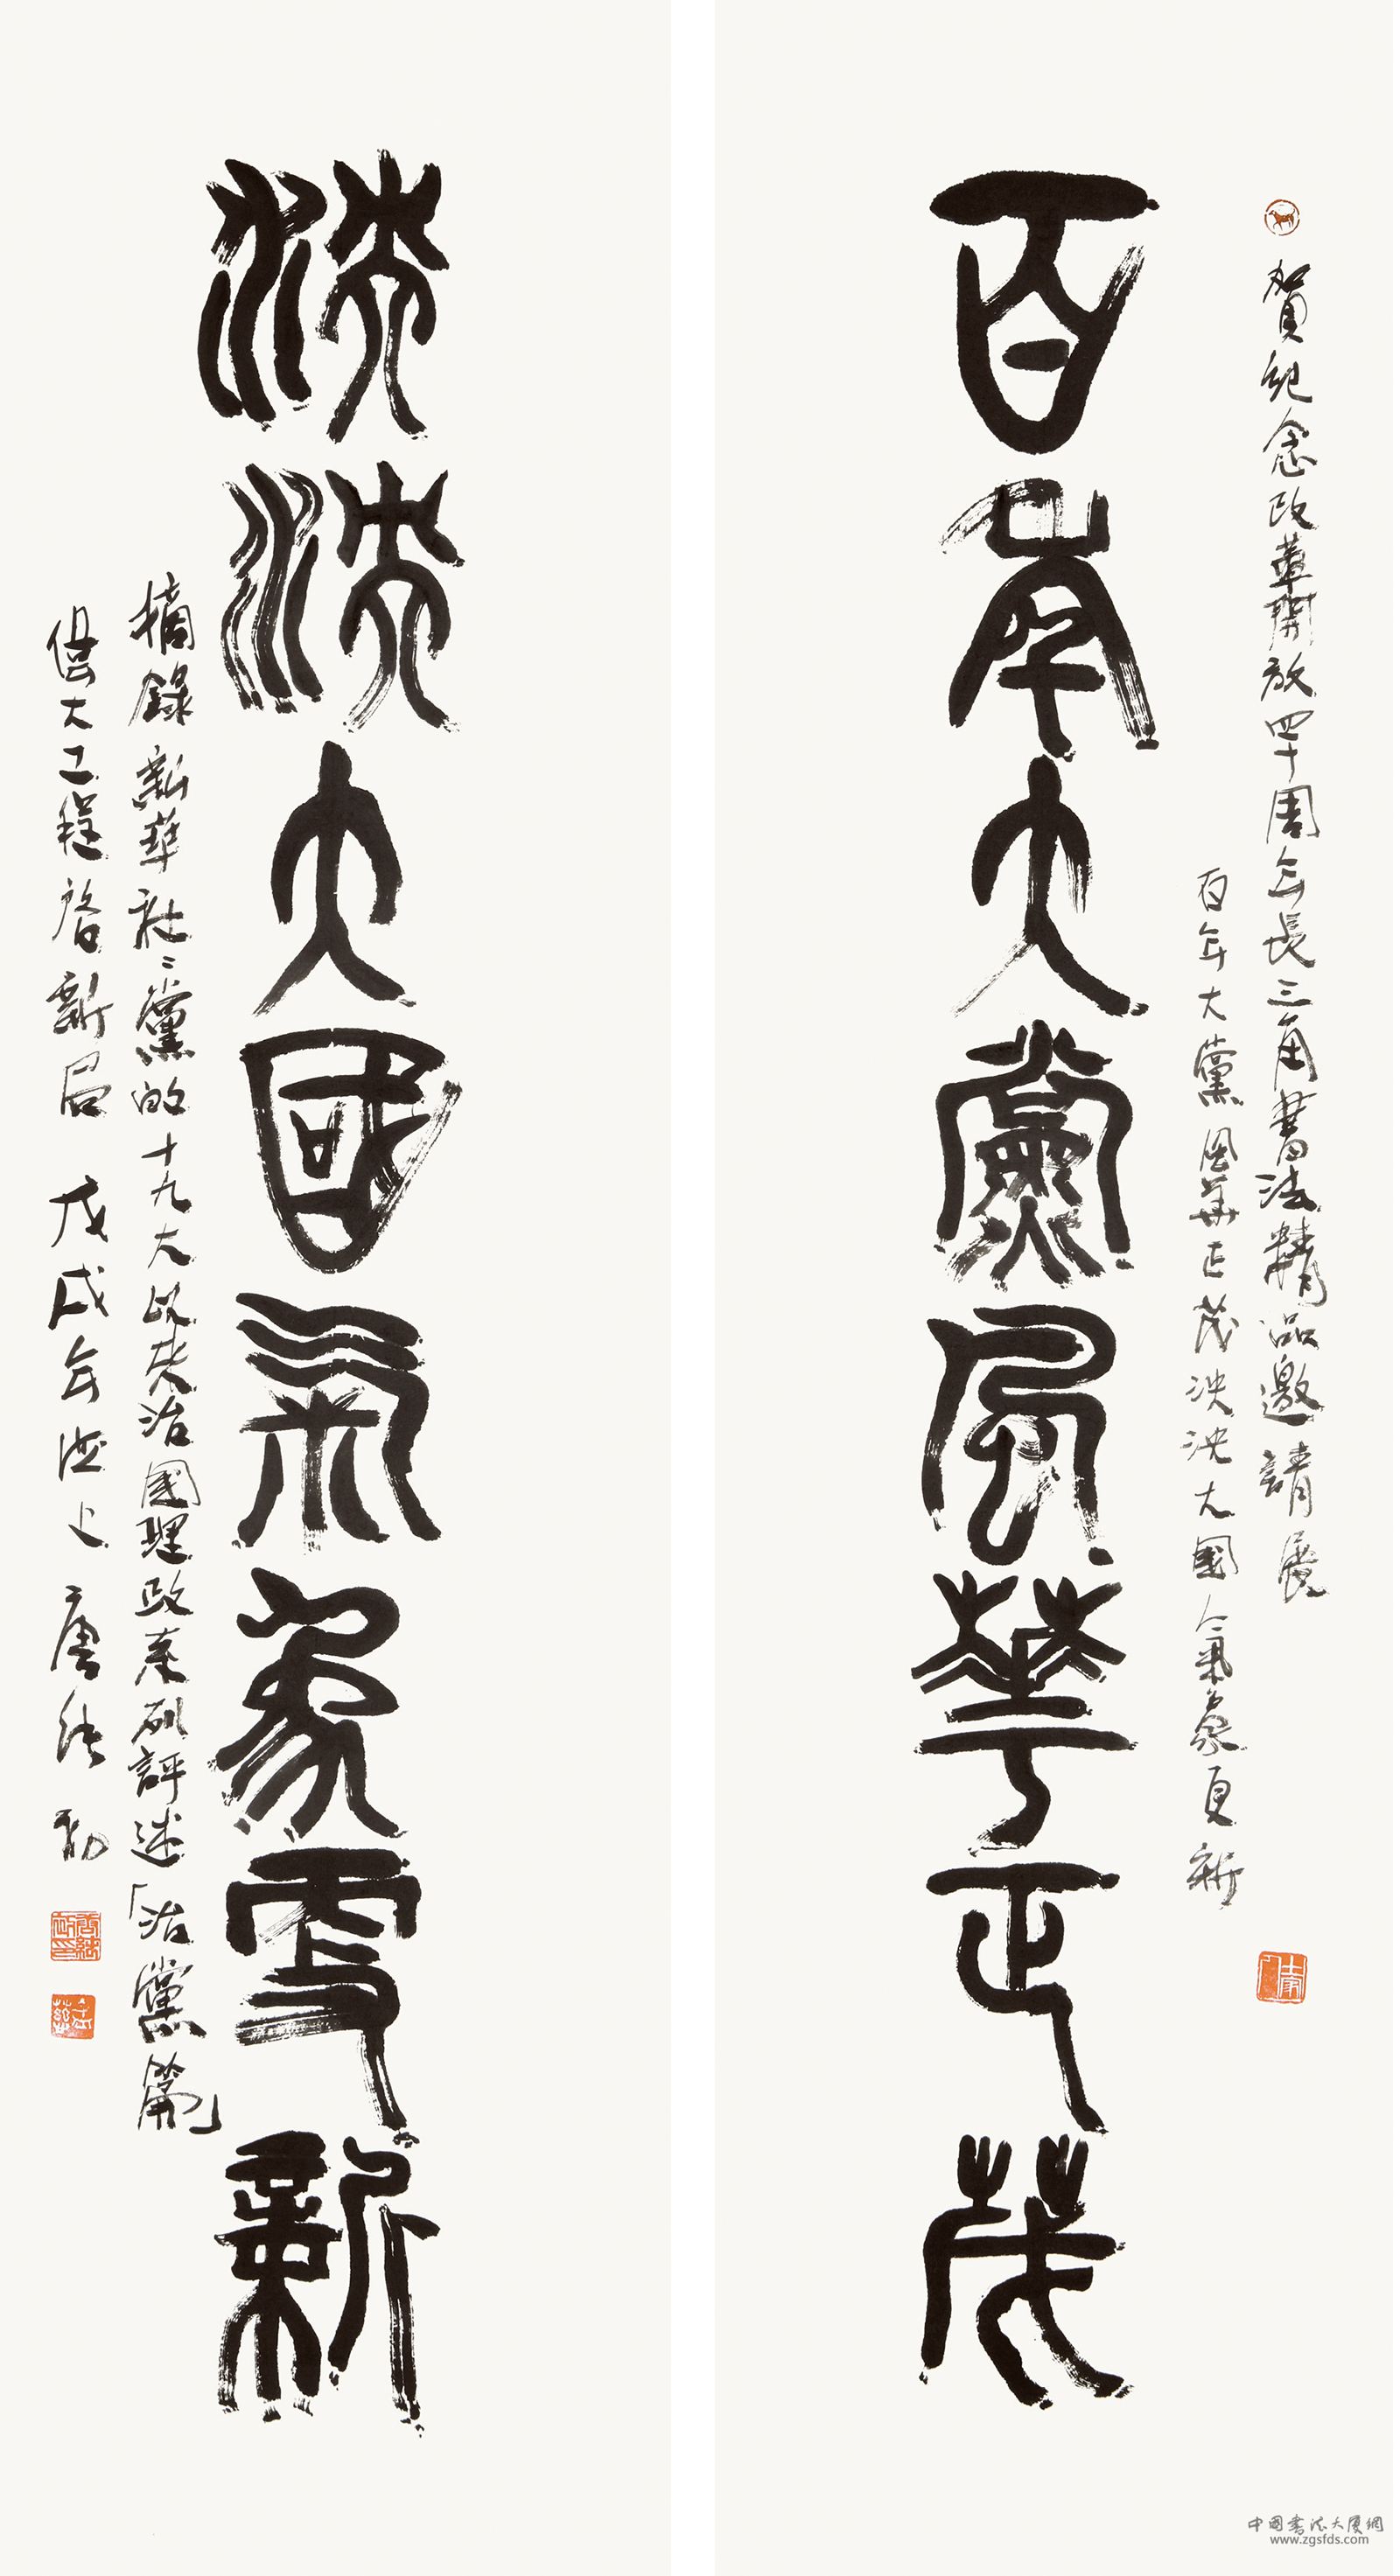 賀紀念改革開放四十周年長三角書法精品邀請展
百年大黨風華正茂泱泱大國氣象更新
百年大黨風華正茂
泱泱大國氣象更新
摘錄新華社：黨的十九大以來治國理政系列評述「治黨篇」
偉大工程啓新局 戊戌年海上唐
中国書法大厦網
www.zgsfds.com